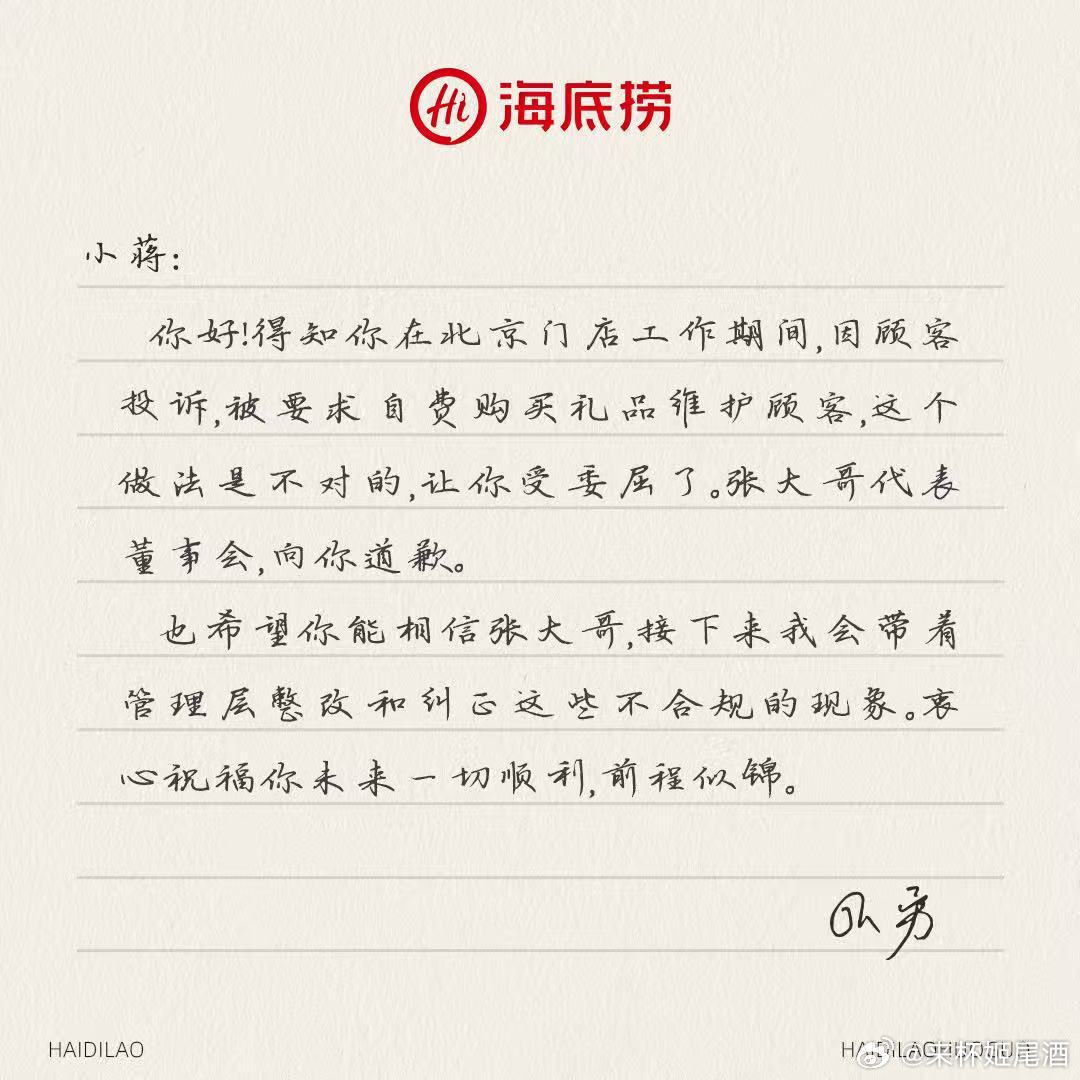 Hi 海底捞
小蒋:
你好!得知你在北京门店工作期间,因顾客
投诉,被要求自费购买礼品维护顾客,这个
做法是不对的,让你受委屈了。张大哥代表
董事会,向你道歉。
也希望你能相信张大哥,接下来我会带着
管理层整改和纠正这些不合规的现象。衷
心祝福你未来一切顺利,前程似锦。
HAIDILAO
@来杯姬尾酒